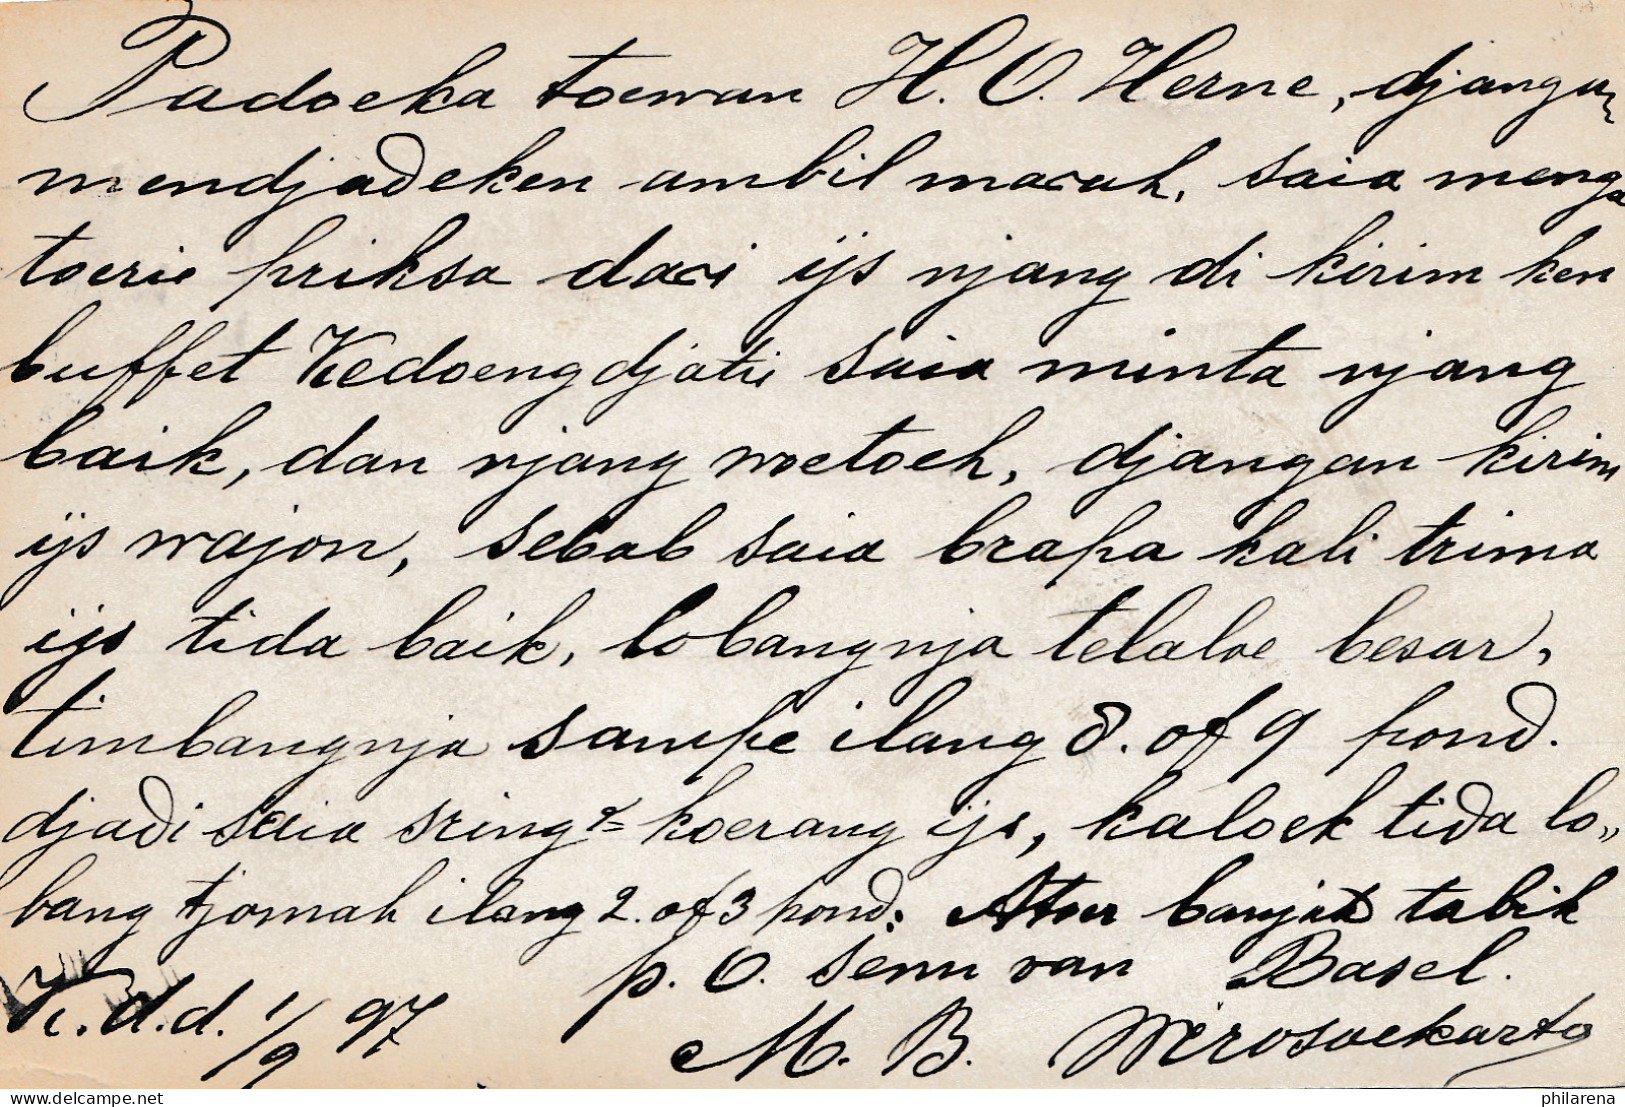 Padoeka toewan H. O. Herne, djangan
mendjadeken ambil marah, saia menga
toerie priksa dari ijs njang di kirim ken
buffet Kedoengdjatie saia minta njang
baik, dan njang woetoeh, djangan kirim
ijs wajon, sebab saia brapa kali trima
ijs tida baik, lobangnja telaloe besar,
timbangnja sampe ilang 8. of 9 pond.
djadi saia sring2 koerang ijs, kaloek tida lo„
bang tjomah ilang 2. of 3 pond. Atoer banjak tabik
p. O. Senn van Basel.
K.d.d. 1/9 97
M. B. Wirosoekarto
www.delcampe.net
philarena